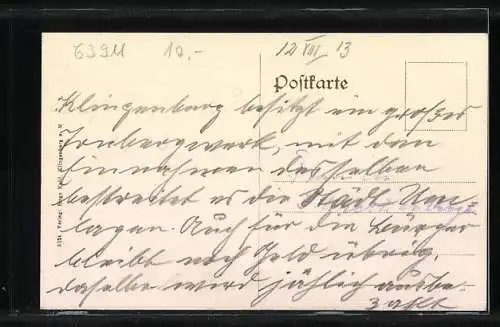 6394 10.-
12 VIII 13
Postkarte
Klingenberg besitzt ein großes
Tonbergwerk, mit den
Einnahmen desselben
bestreitet es die Städt. Umla-
gen. Auch für die Bürger
bleibt noch Geld übrig,
daselbe wird jährlich ausbe-
zahlt